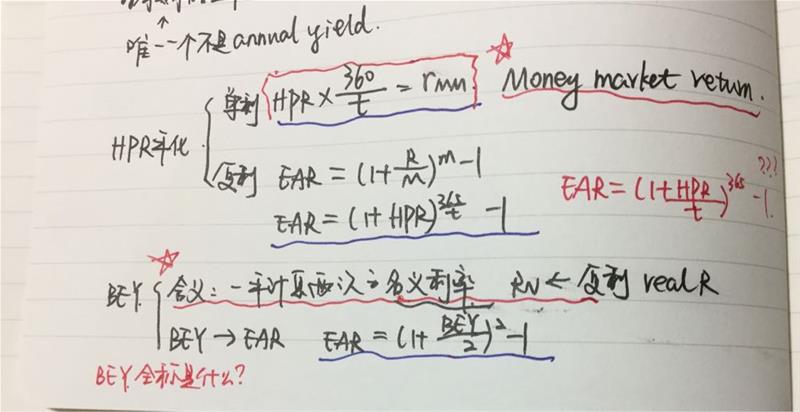 唯一一个不是annual yield.
单利 HPR × 360/t = rMM. Money market return.
HPR年化
复利 EAR = (1+R/M)^m -1
EAR = (1+HPR)^365/t -1
EAR = (1+HPR/t)^365 -1. ???
BEY 含义:一年计算两次之名义利率 RN ← 复利 real R
BEY → EAR EAR = (1+BEY/2)^2 -1
BEY 全称是什么?